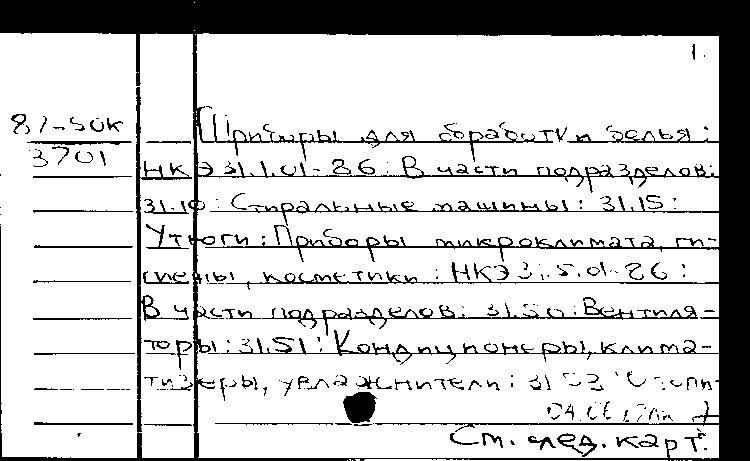 1.
87-50к
3701
Приборы для обработки белья:
НКЭ 31.1.01-86: В части подразделов:
31.10: Стиральные машины: 31.15:
Утюги: Приборы микроклимата, ги-
гиены, косметики: НКЭ 31.5.01-86:
В части подразделов: 31.50: Вентиля-
торы: 31.51: Кондиционеры, клима-
тизеры, увлажнители:
См. след. карт.